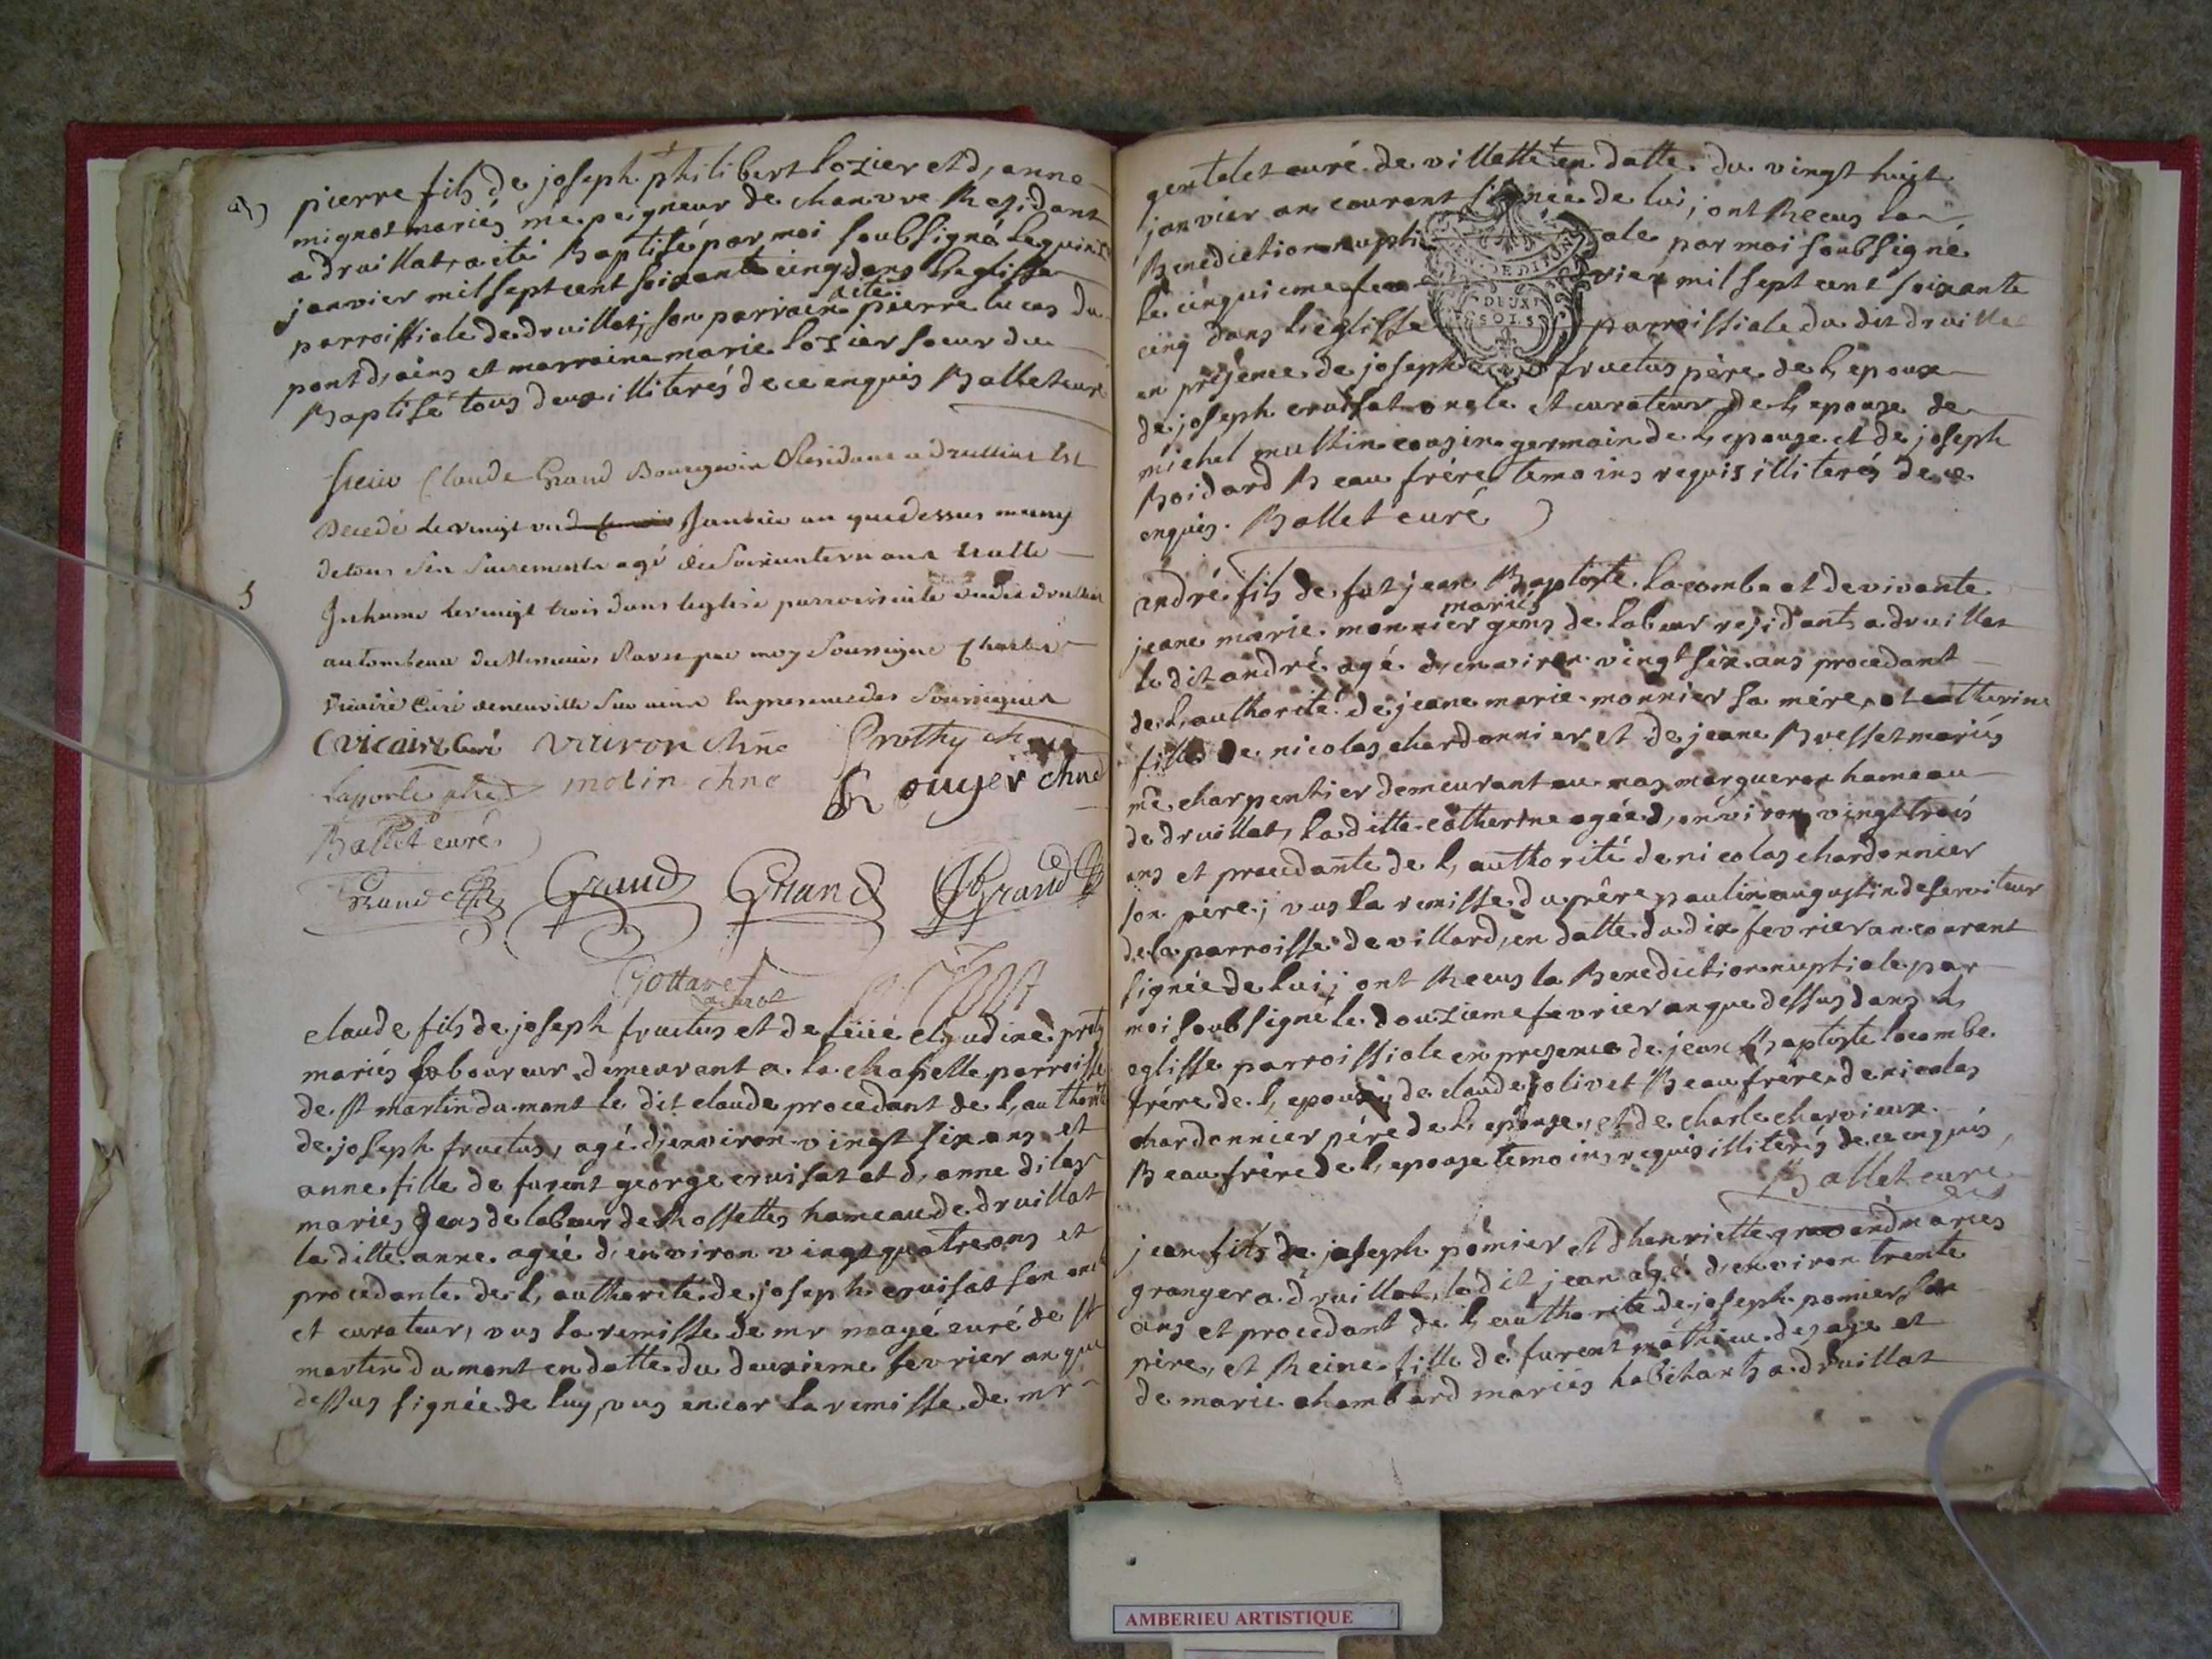 pierre fils de joseph philibert lozier et d, anne
mignot mariés me peigneur de chanvre Residant
a druillat, a eté Baptisé par moi soubsigné le quinze
janvier mil sept cent soixante cinq dans l'eglisse
parroissiale de druillat; son parrain a eté pierre lucas du
pont d, ains et marraine marie lozier soeur du
Baptisé tous deux illiterés de ce enquis Ballet curé
sieur Claude Grand Bourgeois Residant a Druillat Est
Decedé le vingt un Janvier an que dessus muny
de tous ses sacrements agé de soixante
Inhumé le vingt trois dans l'eglise parroissiale dudit druillat
au tombeau par moy soussigné Charles
Vicaire Curé de neuville sur ains En presence des soussignés
C vicaire Curé vuiron chne Prothy ch
Laporte molin chne Rouyer chne
Ballet curé
Grand Grand Grand Grand
Gottaref
claude fils de joseph fructus et de feüe claudine
mariés laboureur demeurant a la chapelle parroisse
de st martin du mont le dit claude procedant de l, authorité
de joseph fructus, agé d, environ vingt six ans et
anne fille de furent george cruisat et d, anne dilas
mariés gens de labeur de Rossettes hameau de druillat
la ditte anne agée d, environ vingt quatre ans et
procedante de l, authorité de joseph cruisat son oncle
et curateur, vus la remisse de mr magé curé de st
martin du mont en datte du deuxieme fevrier an que
dessus signée de luy, vus encor la remisse de mr
gentelet curé de villette en datte du vingt huit
janvier an courant signée de lui; ont Recus la
Benediction nuptiale par moi soubsigné
le cinquieme fevrier mil sept cent soixante
cinq dans l'eglisse parroissiale du dit druillat
en présence de joseph fructus père de l, epoux
de joseph cruisat oncle et curateur de l, epouse de
michel mullin cousin germain de l, epouse et de joseph
Boidard Beau frère temoins requis illiterés de ce
enquis. Ballet curé
DEUX SOLS
andré fils de fut jean Baptiste lacombe et de vivante
jeane marie monnier mariés gens de labeur residants a druillat
le dit andré agé d, environ vingt six ans procedant
de l, authorité de jeane marie monnier sa mère, et catherine
fille de nicolas chardonnier et de jeane Bresset mariés
me charpentier demeurant au mas margueron hameau
de druillat, la ditte catherine agée d, environ vingt trois
ans et procedante de l, authorité de nicolas chardonnier
son père; vus la remisse du père paulin augustin deserviteur
de la parroisse de villard, en datte du dix fevrier an courant
signée de lui; ont Recus la Benediction nuptiale par
moi soubsigné le douzieme fevrier an que dessus dans l,
eglisse parroissiale en presence de jean Baptiste lacombe
frère de l, epoux; de claude jolivet Beau frère de nicolas
chardonnier père de l, epouse, et de charle charvieux
Beau frère de l, epouse temoins requis illiterés de ce enquis
Ballet curé
jean fils de joseph pomier et d henriette grand mariés
granger a druillat, le dit jean agé d, environ trente
ans et procedant de l, authorité de joseph pomier son
père, et Reine fille de furent mathieu desage et
de marie chambard mariés habitants a druillat
AMBERIEU ARTISTIQUE